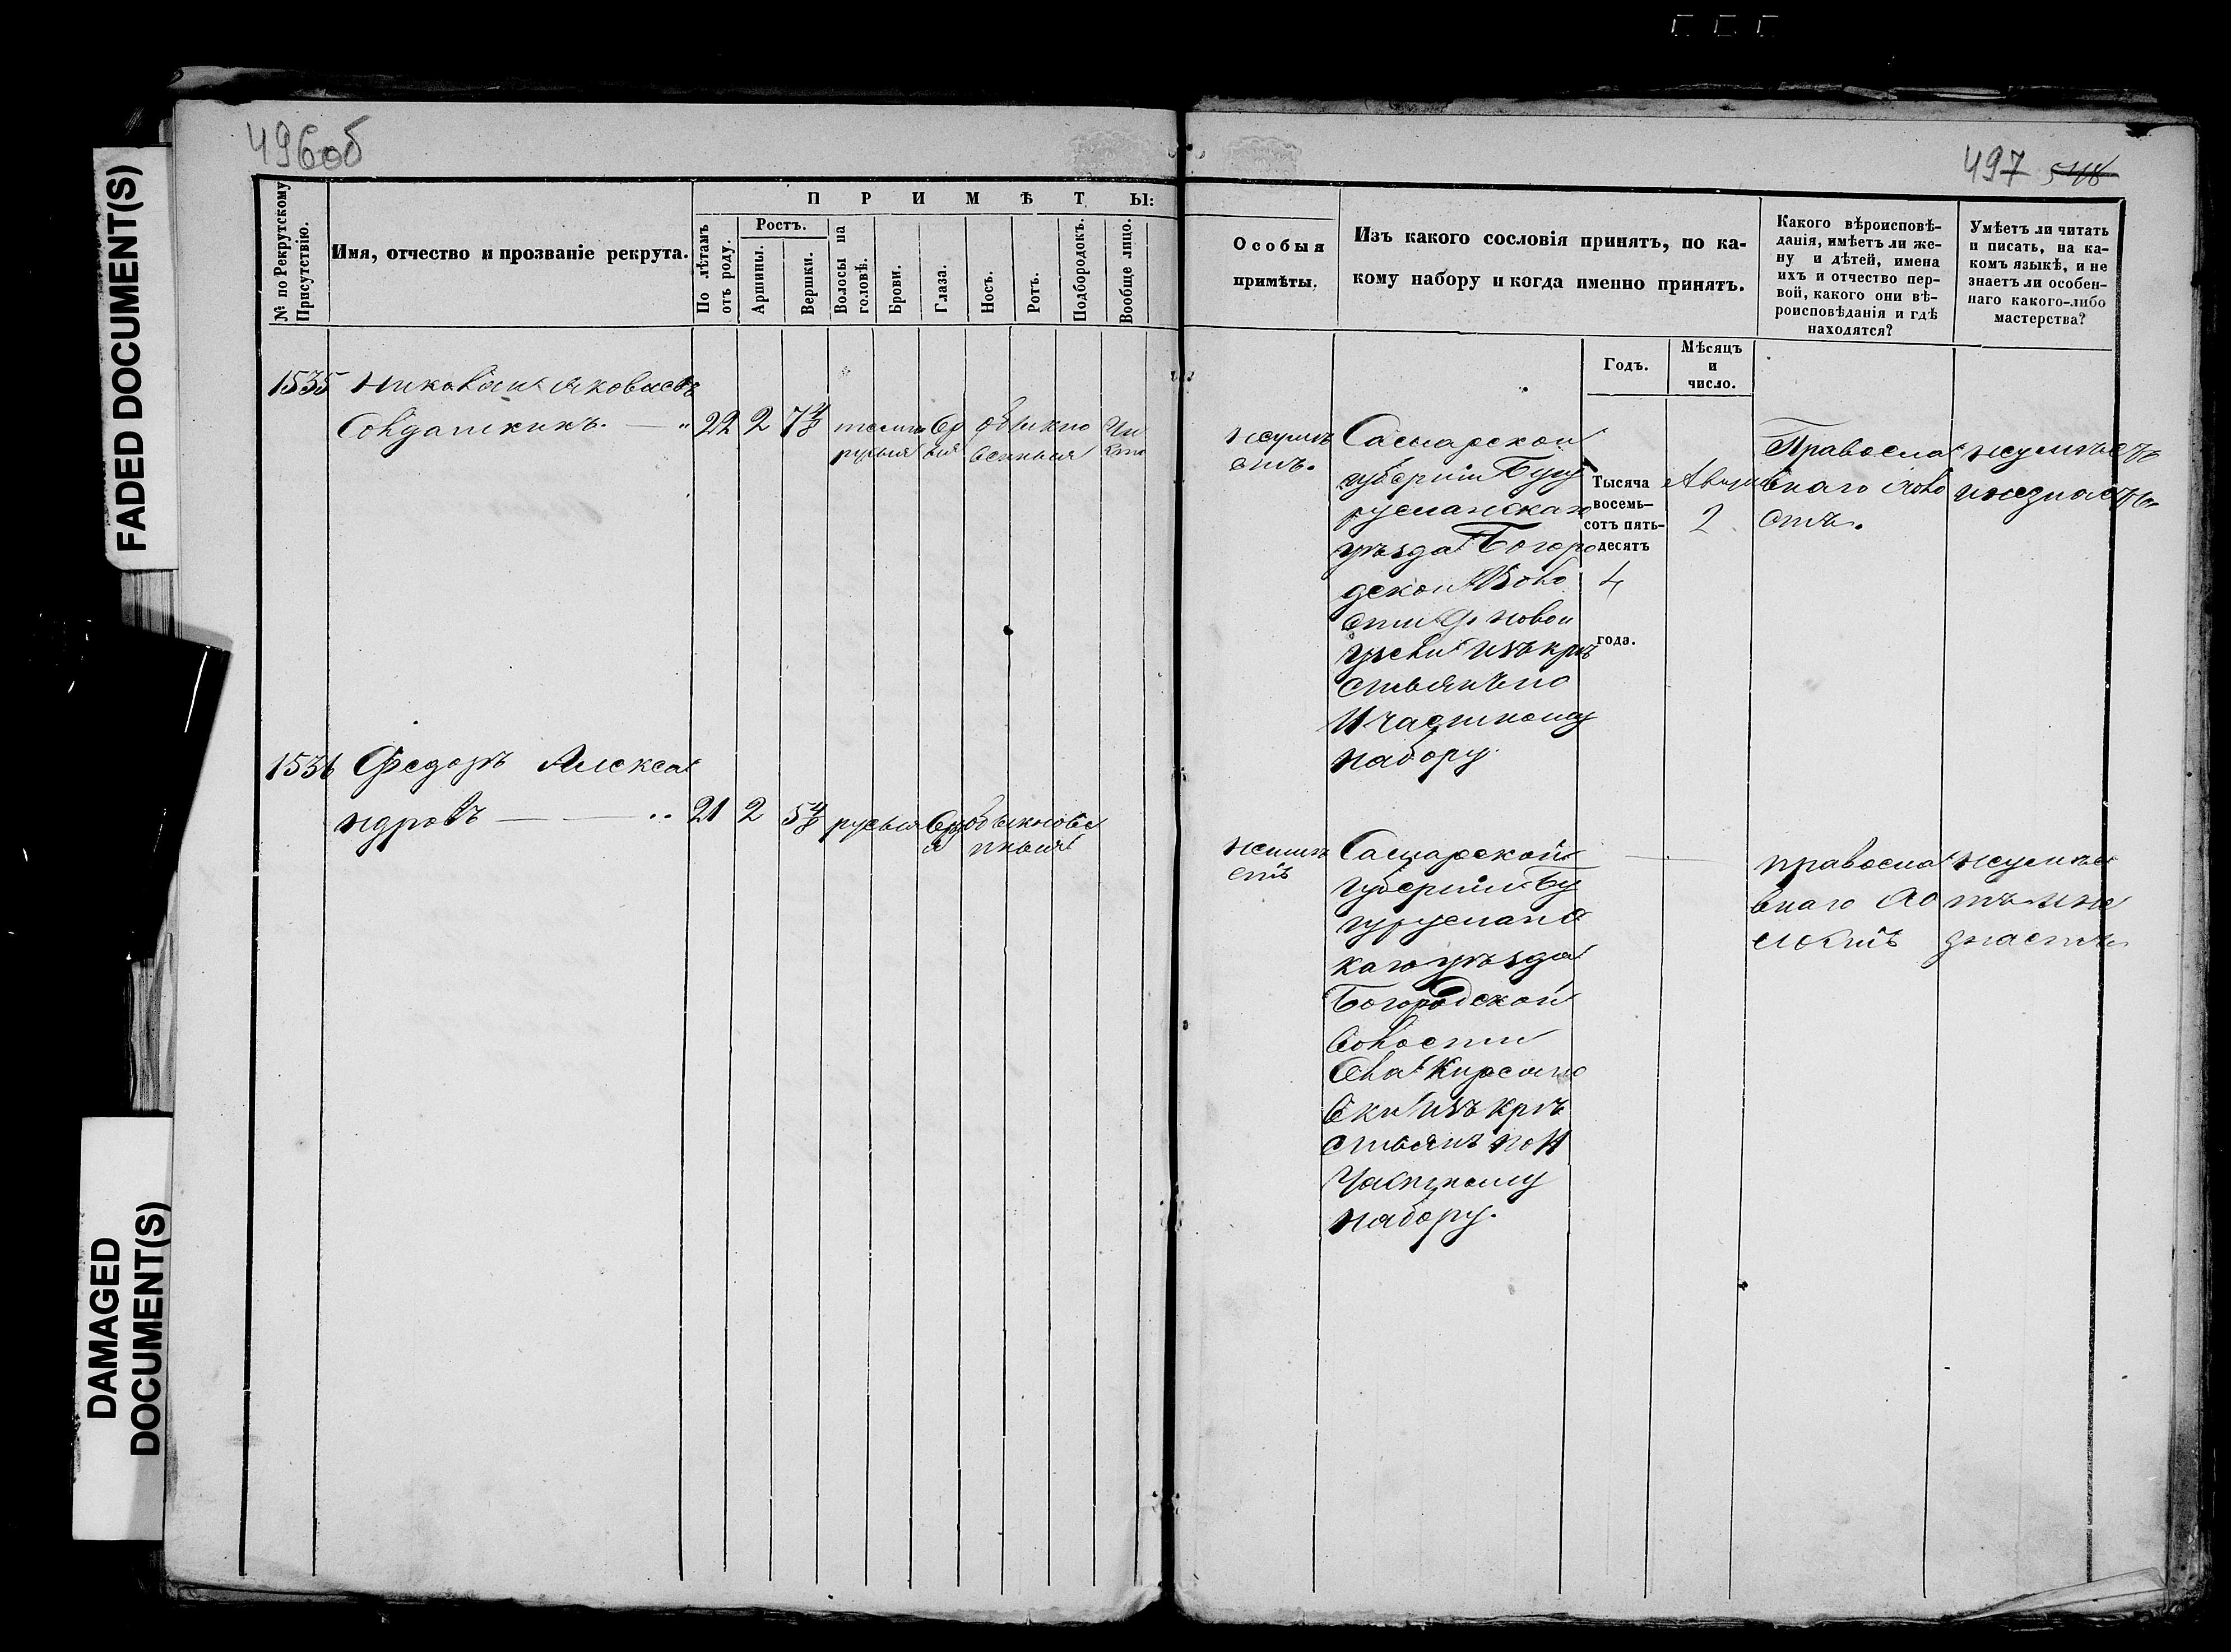 FADED DOCUMENT(S)
DAMAGED
DOCUMENT(S)
496об
№ по Рекрутскому
Присутствію.
Имя, отчество и прозваніе рекрута.
П Р И М Ѣ Т Ы:
По лѣтамъ
отъ роду.
Ростъ.
Аршины.
Вершки.
Волосы на
головѣ.
Брови.
Глаза.
Носъ.
Ротъ.
Подбородокъ.
Вообще лицо.
1535 Николай Яковлевъ
22 2 7 4/8 темно Сѣ обыкно Чи
русыя рыя венныя стое
1536 Федоръ Алекса
ндровъ 21 2 5 4/8 русыя Сѣры обыкнове
я нныя
497 548
Особыя
примѣты.
Изъ какого сословія принятъ, по ка-
кому набору и когда именно принятъ.
Годъ.
Мѣсяцъ
и
число.
Какого вѣроисповѣ-
данія, имѣетъ ли же-
ну и дѣтей, имена
ихъ и отчество пер-
вой, какого они вѣ-
роисповѣданія и гдѣ
находятся?
Умѣетъ ли читать
и писать, на ка-
комъ языкѣ, и не
знаетъ ли особен-
наго какого-либо
мастерства?
Самарской
губерніи Бугу
русланскаго
уѣзда Богоро
дской Воло
сти д. новой
изъ кре
стьянъ по
И частному
набору.
Тысяча
восемь-
сотъ пять-
десятъ
4
года.
Августа
2
Правосла
внаго холо
стъ.
неумѣетъ
инезнаетъ
неимѣ
етъ
Самарской
губерніи Бу
гурусланс
каго уѣзда
Богородской
волости
Села Кирсано
вки изъ кре
стьянъ по И
частному
набору.
правосла
внаго хо
лостъ
неумѣе
тъ ине
знаетъ